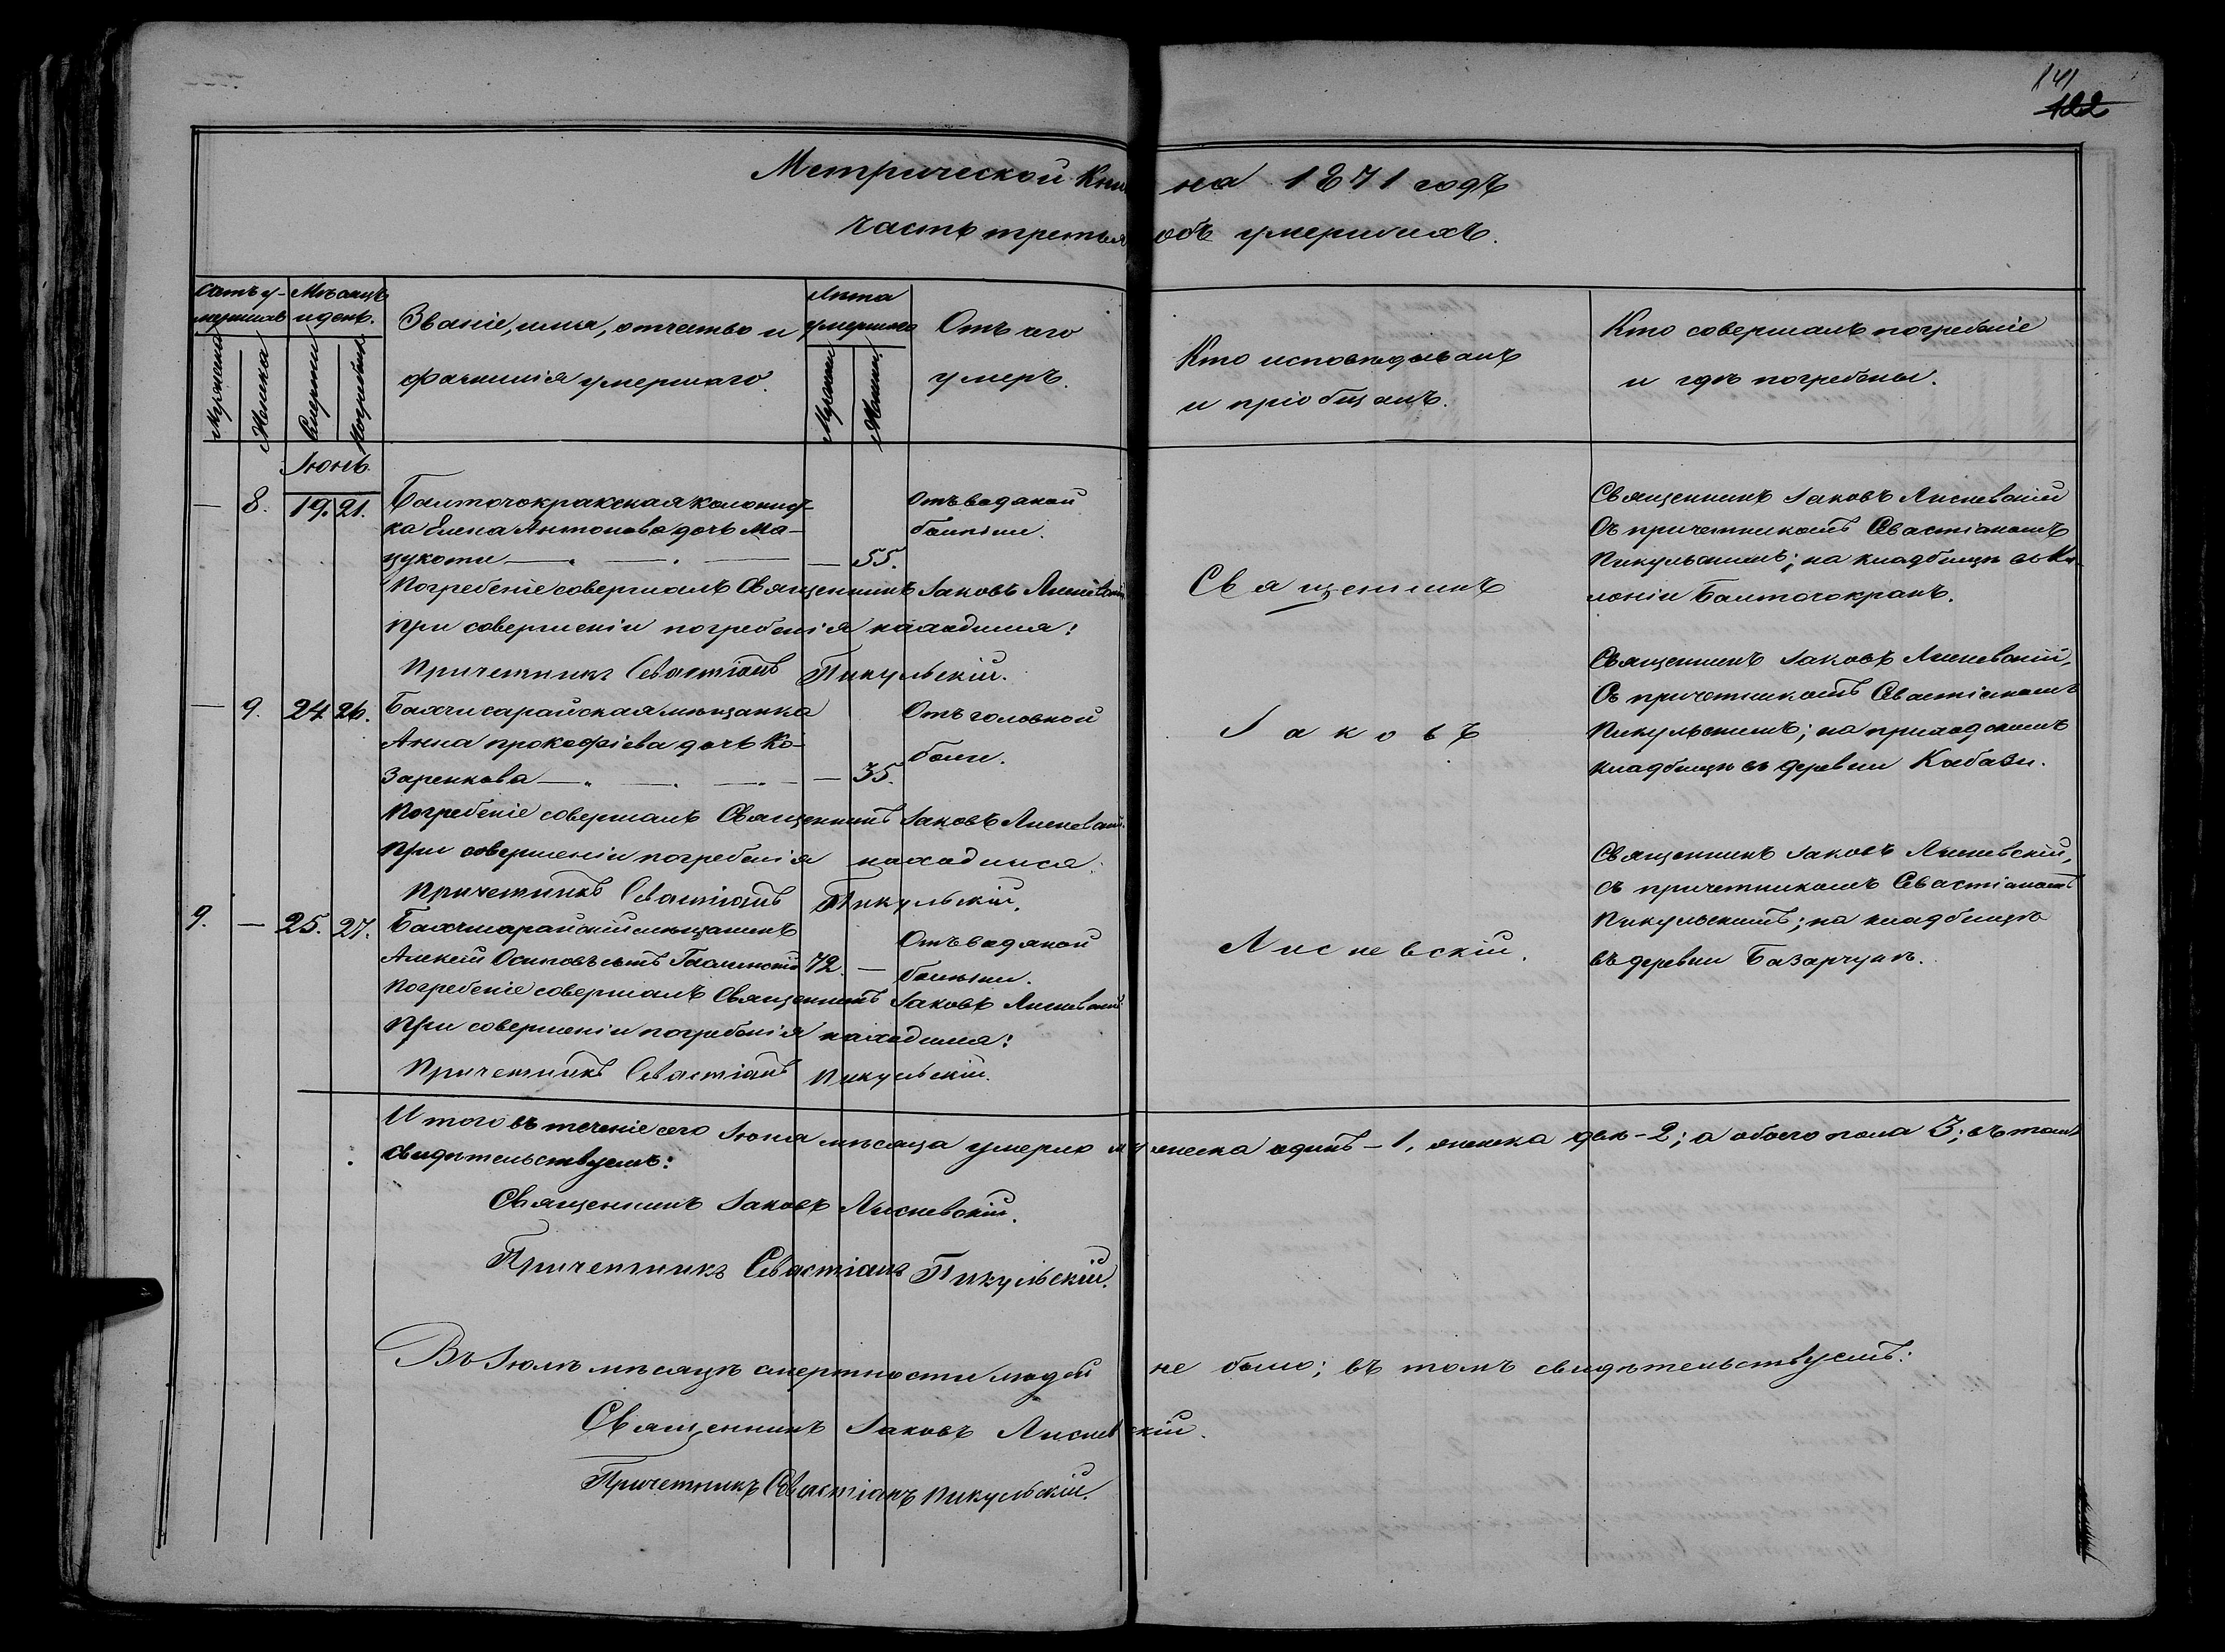 141
122
Метрической Кни на 1871 годъ
часть третья объ умершихъ.
Счетъ у-
мершихъ
Мужеска
Женска
Мѣсяцъ
и день.
Смерти
Погребенія
Званіе, имя, отчество и
фамилія умершаго.
Лѣта
умершаго
Мужеска
Женска
Отъ чего
умеръ.
Кто исповѣдывалъ
и пріобщалъ.
Кто совершалъ погребеніе
и гдѣ погребены.
Іюнь.
— 8. 19. 21. Балточокракская колонист-
ка Елена Антонова дочь Ма-
цукоти — 55.
Отъ водяной
болѣзни.
Погребеніе совершалъ Священникъ Іаковъ Лисневскій
При совершеніи погребенія находился:
Причетникъ Севастіанъ Пикульскій.
— 9. 24. 26. Бахчисарайская мѣщанка
Анна Прокофіева дочь Ко-
заренкова — 35.
Отъ головной
боли.
Погребеніе совершалъ Священникъ Іаковъ Лисневскій.
При совершеніи погребенія находился:
Причетникъ Севастіанъ Пикульскій.
9. — 25. 27. Бахчисарайскій мѣщанинъ
Алексій Осиповъ сынъ 72. —
Отъ водяной
болѣзни.
Погребеніе совершалъ Священникъ Іаковъ Лисневскій
При совершеніи погребенія находился:
Причетникъ Севастіанъ Пикульскій.
Священникъ
Іаковъ
Лисневскій.
Священникъ Іаковъ Лисневскій
Съ причетникомъ Севастіаномъ
Пикульскимъ; на кладбищѣ въ Ко-
лоніи Балточокракъ.
Священникъ Іаковъ Лисневскій,
Съ причетникомъ Севастіаномъ
Пикульскимъ; на приходскомъ
кладбищѣ въ деревни Кабази.
Священникъ Іаковъ Лисневскій,
съ причетникомъ Севастіаномъ
Пикульскимъ; на кладбищѣ
въ деревни Базарчукъ.
Итого въ теченіе сего Іюня мѣсяца умерло мужеска одинъ — 1, женска двѣ — 2; а обоего пола 3; въ томъ
свидѣтельствуемъ:
Священникъ Іаковъ Лисневскій.
Причетникъ Севастіанъ Пикульскій.
Въ Іюлѣ мѣсяцѣ смертности людей не было; въ томъ свидѣтельствуемъ:
Священникъ Іаковъ Лисневскій.
Причетникъ Севастіанъ Пикульскій.